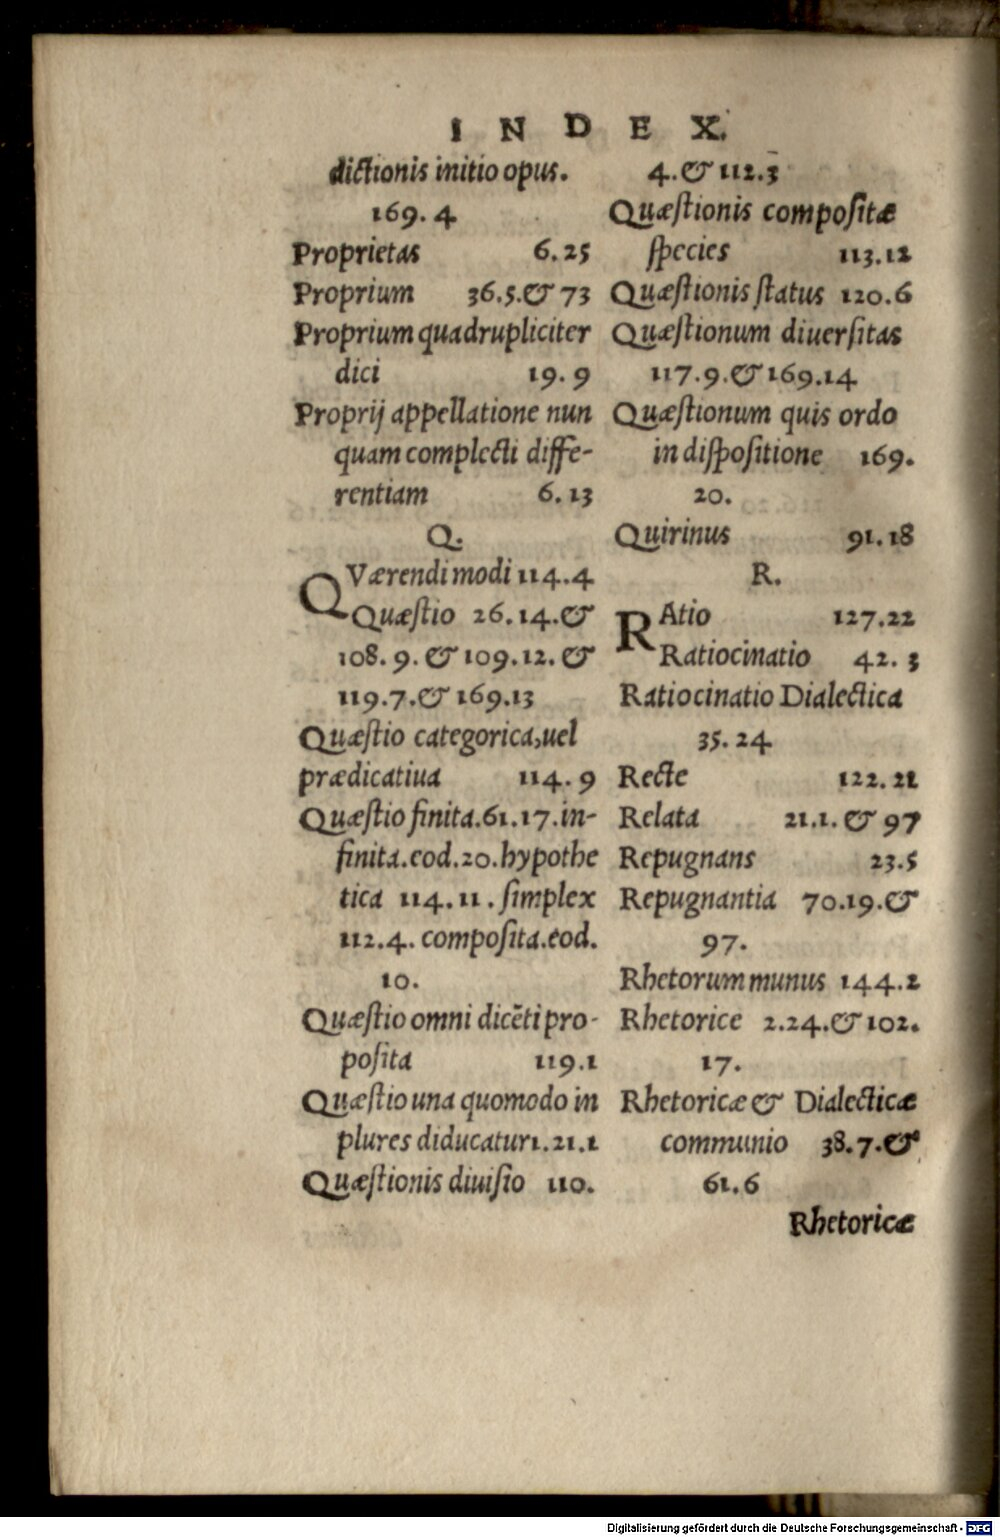 INDEX.
dictionis initio opus.
169. 4
Proprietas 6.25
Proprium 36.5.& 73
Proprium quadrupliciter
dici 19. 9
Proprij appellatione nun
quam complecti diffe-
rentiam 6.13
Q.
QVærendi modi 114.4
Quæstio 26.14.&
108. 9. & 109.12. &
119.7.& 169.13
Quæstio categorica,uel
prædicatiua 114. 9
Quæstio finita.61.17.in-
finita.eod.20.hypothe
tica 114.11. simplex
112.4. composita.eod.
10.
Quæstio omni dicēti pro-
posita 119.1
Quæstio una quomodo in
plures diducatur1.21.1
Quæstionis diuisio 110.
4.& 112.3
Quæstionis compositæ
species 113.12
Quæstionis status 120.6
Quæstionum diuersitas
117.9.& 169.14
Quæstionum quis ordo
in dispositione 169.
20.
Quirinus 91.18
R.
RAtio 127.22
Ratiocinatio 42. 3
Ratiocinatio Dialectica
35.24
Recte 122.21
Relata 21.1. & 97
Repugnans 23.5
Repugnantia 70.19.&
97.
Rhetorum munus 144.2
Rhetorice 2.24.& 102.
17.
Rhetoricæ & Dialecticæ
communio 38.7.&
61.6
Rhetoricæ
Digitalisierung gefördert durch die Deutsche Forschungsgemeinschaft - DFG